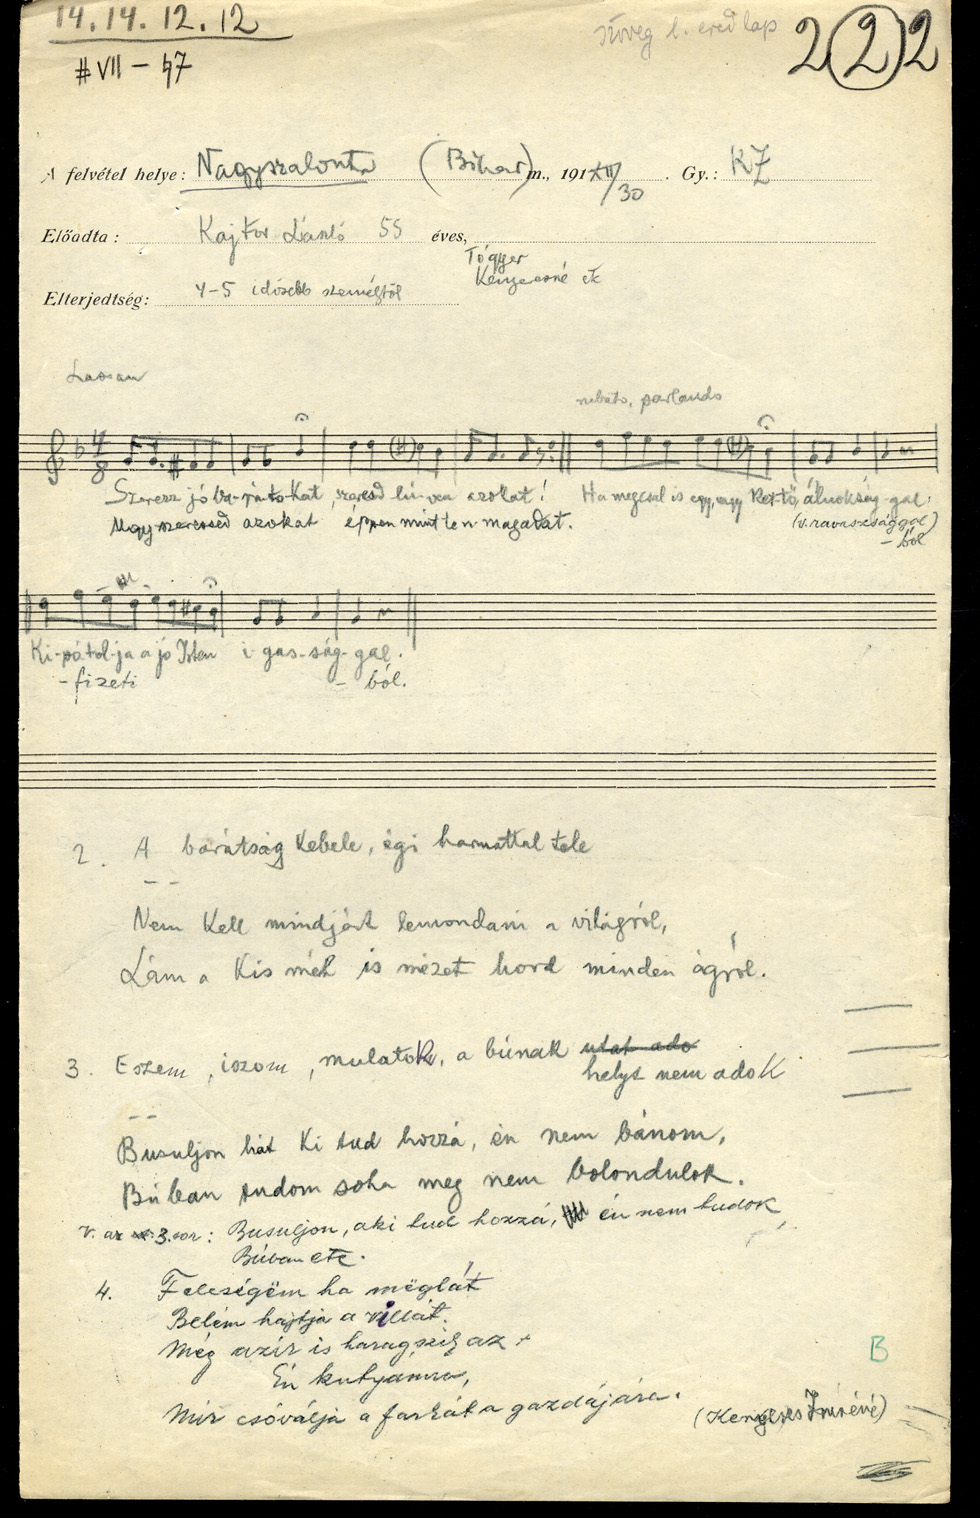 14.14.12.12
Szöveg l. ered lap
222
# VII - 47
A felvétel helye: Nagyszalonta (Bihar)m., 191 XII/30. Gy.: KZ
Előadta: Kajtor László 55 éves,
Tógyer
Kenyeresné etc
Elterjedtség: 4-5 idősebb személytől
Lassan
rubato, parlando
4/8
Szerezz jó ba-rá-to-kat, szeresd hí-ven azokat! Ha megcsal is egy, vagy ket-tő, álnokság-gal.
Ugy szeressed azokat éppen mint ten-magadat. (v. ravaszsággal)
- ból
Ki-pó-tol-ja a jó Isten i-gas-ság-gal.
- fizeti - ból.
2. A barátság kebele, égi harmattal tele
- -
Nem kell mindjárt lemondani a világról,
Lám a kis méh is mézet hord minden ágról.
3. Eszem, iszom, mulatok, a búnak utat ado
helyt nem adok
- -
Busuljon hát ki tud hozzá, én nem bánom,
Búban tudom soha meg nem bolondulok.
V. az 3. sor: Busuljon, aki tud hozzá, én nem tudok
Búban etc.
4. Feleségëm ha mëglát
Belém hajtja a villát.
Még azír is haragszik az
Én kutyámra,
Mír csóválja a farkát a gazdájára.
B
(Kenyeres Imréné)